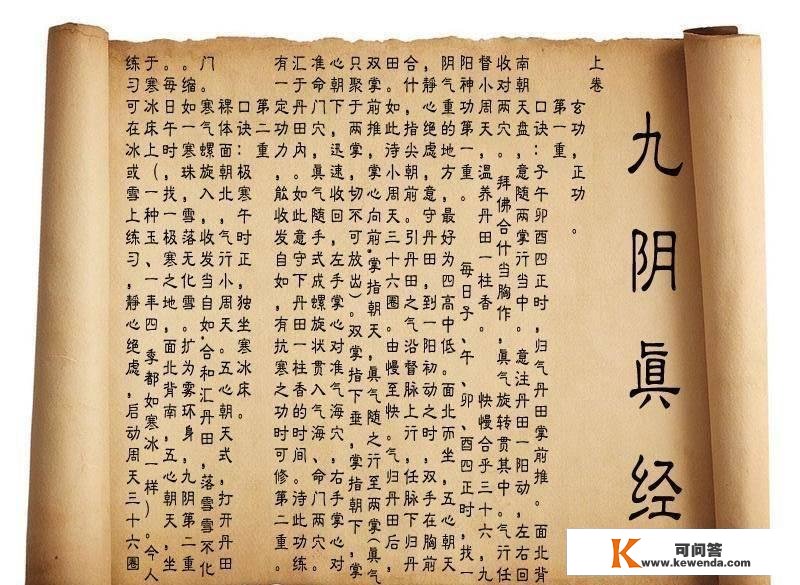 九阴眞经
上卷
玄功,正功。
第一重
口诀:子午卯酉四正时,归气丹田掌前推。面北背
南朝天盘,意随两掌行当中。意注丹田一阳动,左右回
收对两穴。拜佛合什当胸作,眞气旋转贯其中。气行任
督小周天,温养丹田一柱香。快慢合乎三十六,九
阳神功第一重。每日子、午、卯、酉四正时,找一
阴气重的地方,最好为四高中低。面北而坐,五心朝天
,静心绝虑,意守丹田,到一阳初动之时,双手在胸前
合什,指尖朝前。引丹田之气沿督脉上行,任脉下归丹
田。如此诗小周天三十六圈。由慢至快。气归丹田后,
双掌前推,掌心向前,掌指朝天,眞气随之行至两掌(眞气
只聚于两掌,切不可放出)。双掌指下垂,掌指朝下,掌
心朝下,迅速收回,左手掌心对准气海穴,右手掌心对
准命门穴,眞气随手式成螺旋状贯入气海、命门两穴。
汇于丹田内。如此意守下丹田一柱香的时间。诗此功练
有一定功力,能收发自如,有抗寒之功时可修第二重。
第二重
口诀:极寒午时正,独坐寒冰床。
裸体面朝北,气行小周天。五心朝天式,打开丹田
门。寒气螺旋入,收发当自如,合和汇丹田,落雪雪不化
。缩如一寒珠,雪落无化雪。扩为雾环身,九阴第二重
。每日午时,找一极寒之地,面北背南,五心朝天,坐
于寒冰床上(一种玉、一年四季都如寒冰一样)。令人
练习可在冰或雪上练习,静心绝虑,启动周天三十六圈
K 可问答
www.kewenda.com